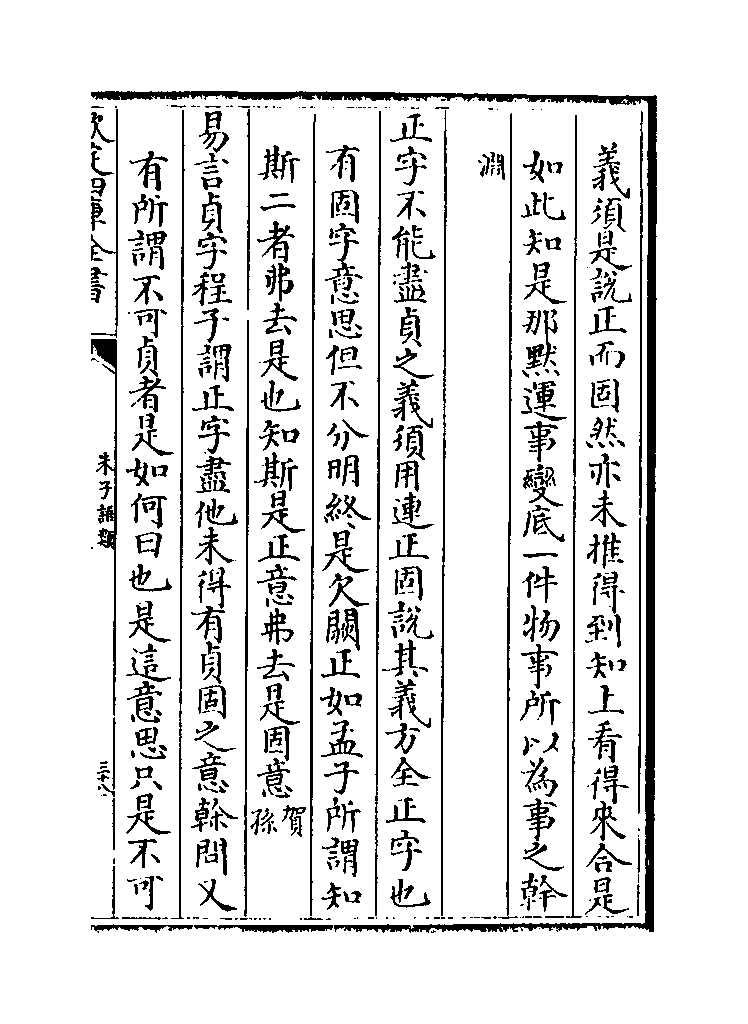 義須是說正而固然亦未推得到知上看得來合是
如此知是那黙運事變底一件物事所以為事之幹
淵
正字不能盡貞之義須用連正固說其義方全正字也
有固字意思但不分明終是欠闕正如孟子所謂知
斯二者弗去是也知斯是正意弗去是固意賀孫
易言貞字程子謂正字盡他未得有貞固之意榦問又
有所謂不可貞者是如何曰也是這意思只是不可
欽定四庫全書
朱子語類
三十八